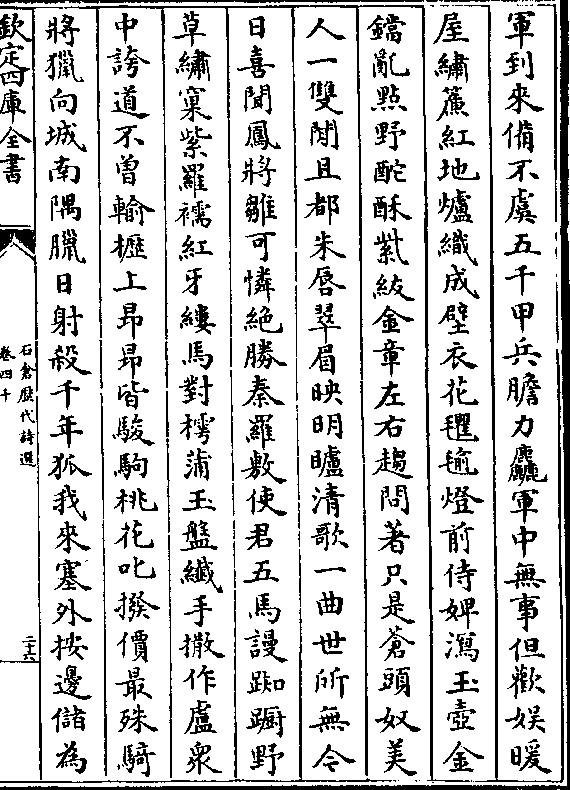 軍到來備不虞五千甲兵膽力麤軍中無事但歡娯暖
屋繡簾紅地爐織成壁衣花氍毹燈前侍婢瀉玉壺金
鐺亂點野酡酥紫紱金章左右趨問著只是蒼頭奴美
人一雙閑且都朱唇翠眉映明矑清歌一曲世所無今
日喜聞鳳將雛可憐絶勝秦羅敷使君五馬謾踟蹰野
草繡窠紫羅襦紅牙縷馬對樗蒲玉盤纖手撒作盧衆
中誇道不曽輸櫪上昂昂皆駿駒桃花叱撥價最殊騎
將獵向城南隅臘日射殺千年狐我來塞外按邊儲為
欽定四庫全書
石倉歷代詩選
卷四十
二十六